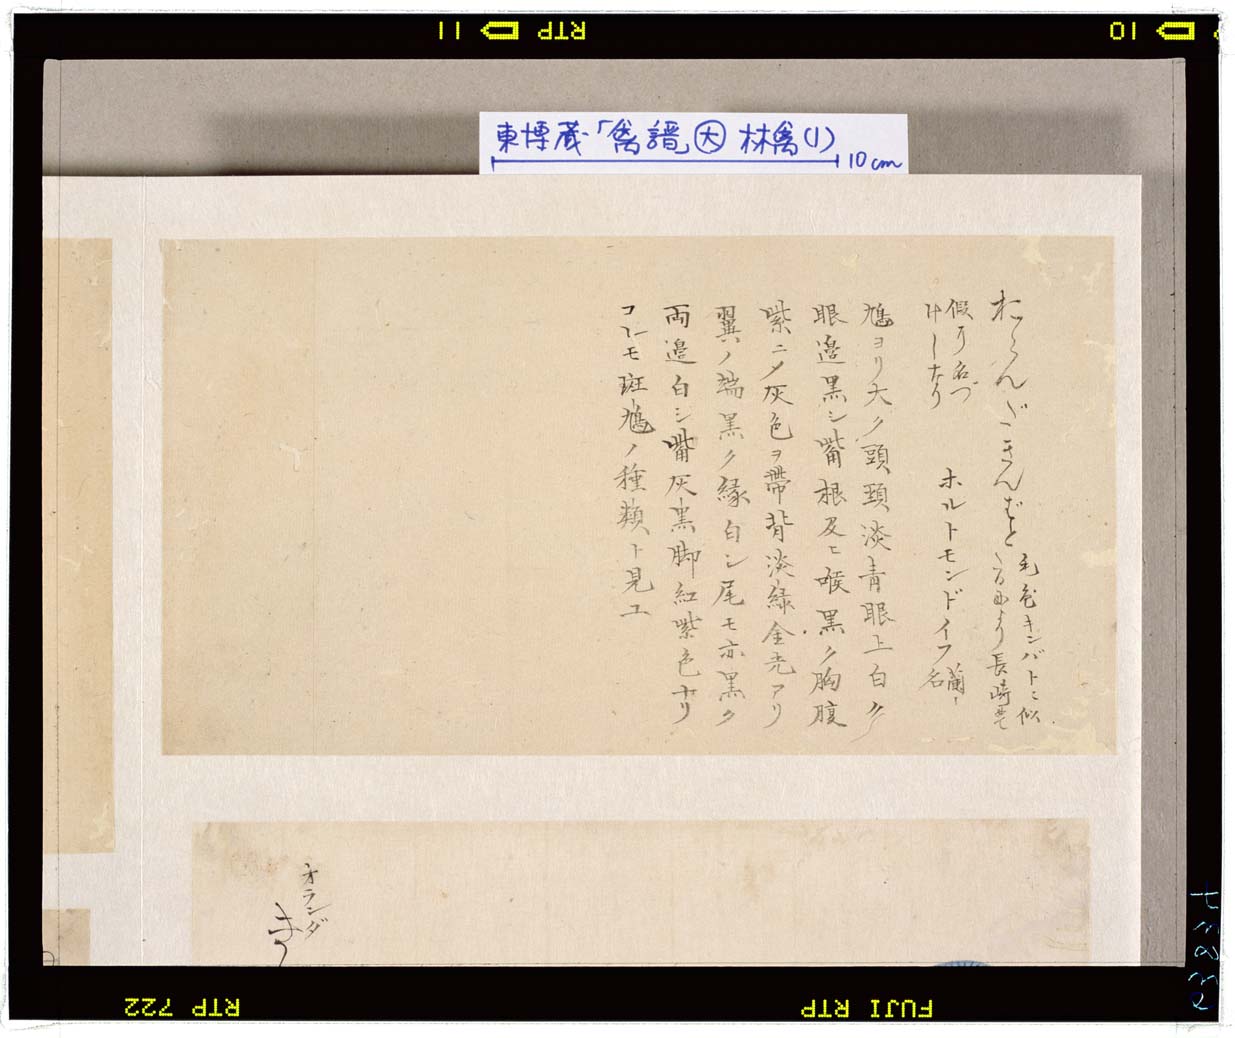 東博蔵「禽譜」大 林禽(1)
10cm
おらんだきんばと
毛色キンバトニ似
たるより長崎にて
假リ名づ
けしなり
ホルトモンドイフ
蘭名
鳩ヨリ大ク頭頸淡青眼上白ク
眼邉黒シ嘴根及ヒ喉黒ク胸腹
紫ニメ灰色ヲ帶背淡緑金光アリ
翼ノ端黒ク縁白シ尾モ亦黒ク
両邉白シ嘴灰黒脚紅紫色ナリ
コレモ斑鳩ノ種類ト見ユ
オランダ
き
RTP
11
10
RTP 722
FUJI RTP